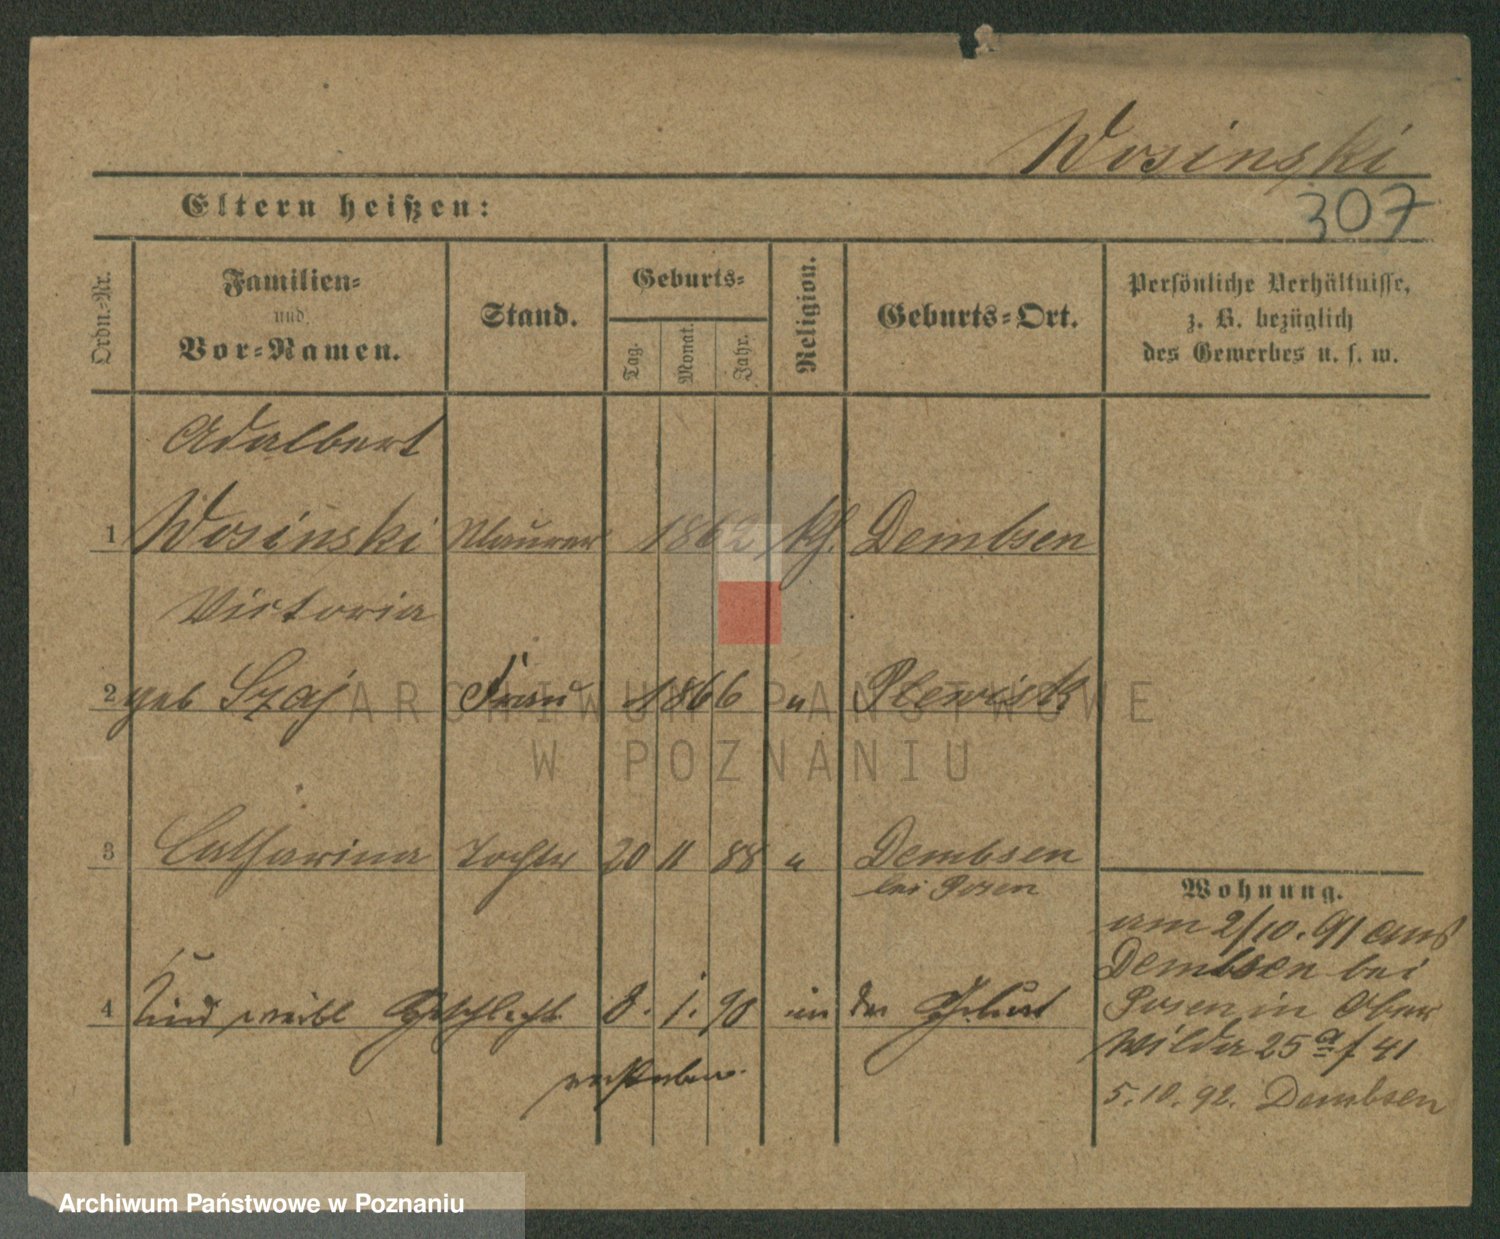 Wosinski
Eltern heißen:
307
Ordn.-Nr.
Familien-
und
Vor-Namen.
Stand.
Geburts-
Tag.
Monat.
Jahr.
Religion.
Geburts-Ort.
Persönliche Verhältnisse,
z. B. bezüglich
des Gewerbes u. s. w.
Adalbert
1 Wosinski Maurer 1862 kh. Dembsen
Victoria
2 geb Szaj Frau 1866 " Plewisk
3 Catharina Tochter 20 11 88 " Dembsen
bei Posen
4 Kind weibl Geschlecht 8. 1. 90 in der Geburt
verstorben.
Wohnung.
am 2/10. 91 aus
Dembsen bei
Posen in Ober
Wilda 25 a f 41
5. 10. 92. Dembsen
ARCHIWUM PAŃSTWOWE
W POZNANIU
Archiwum Państwowe w Poznaniu